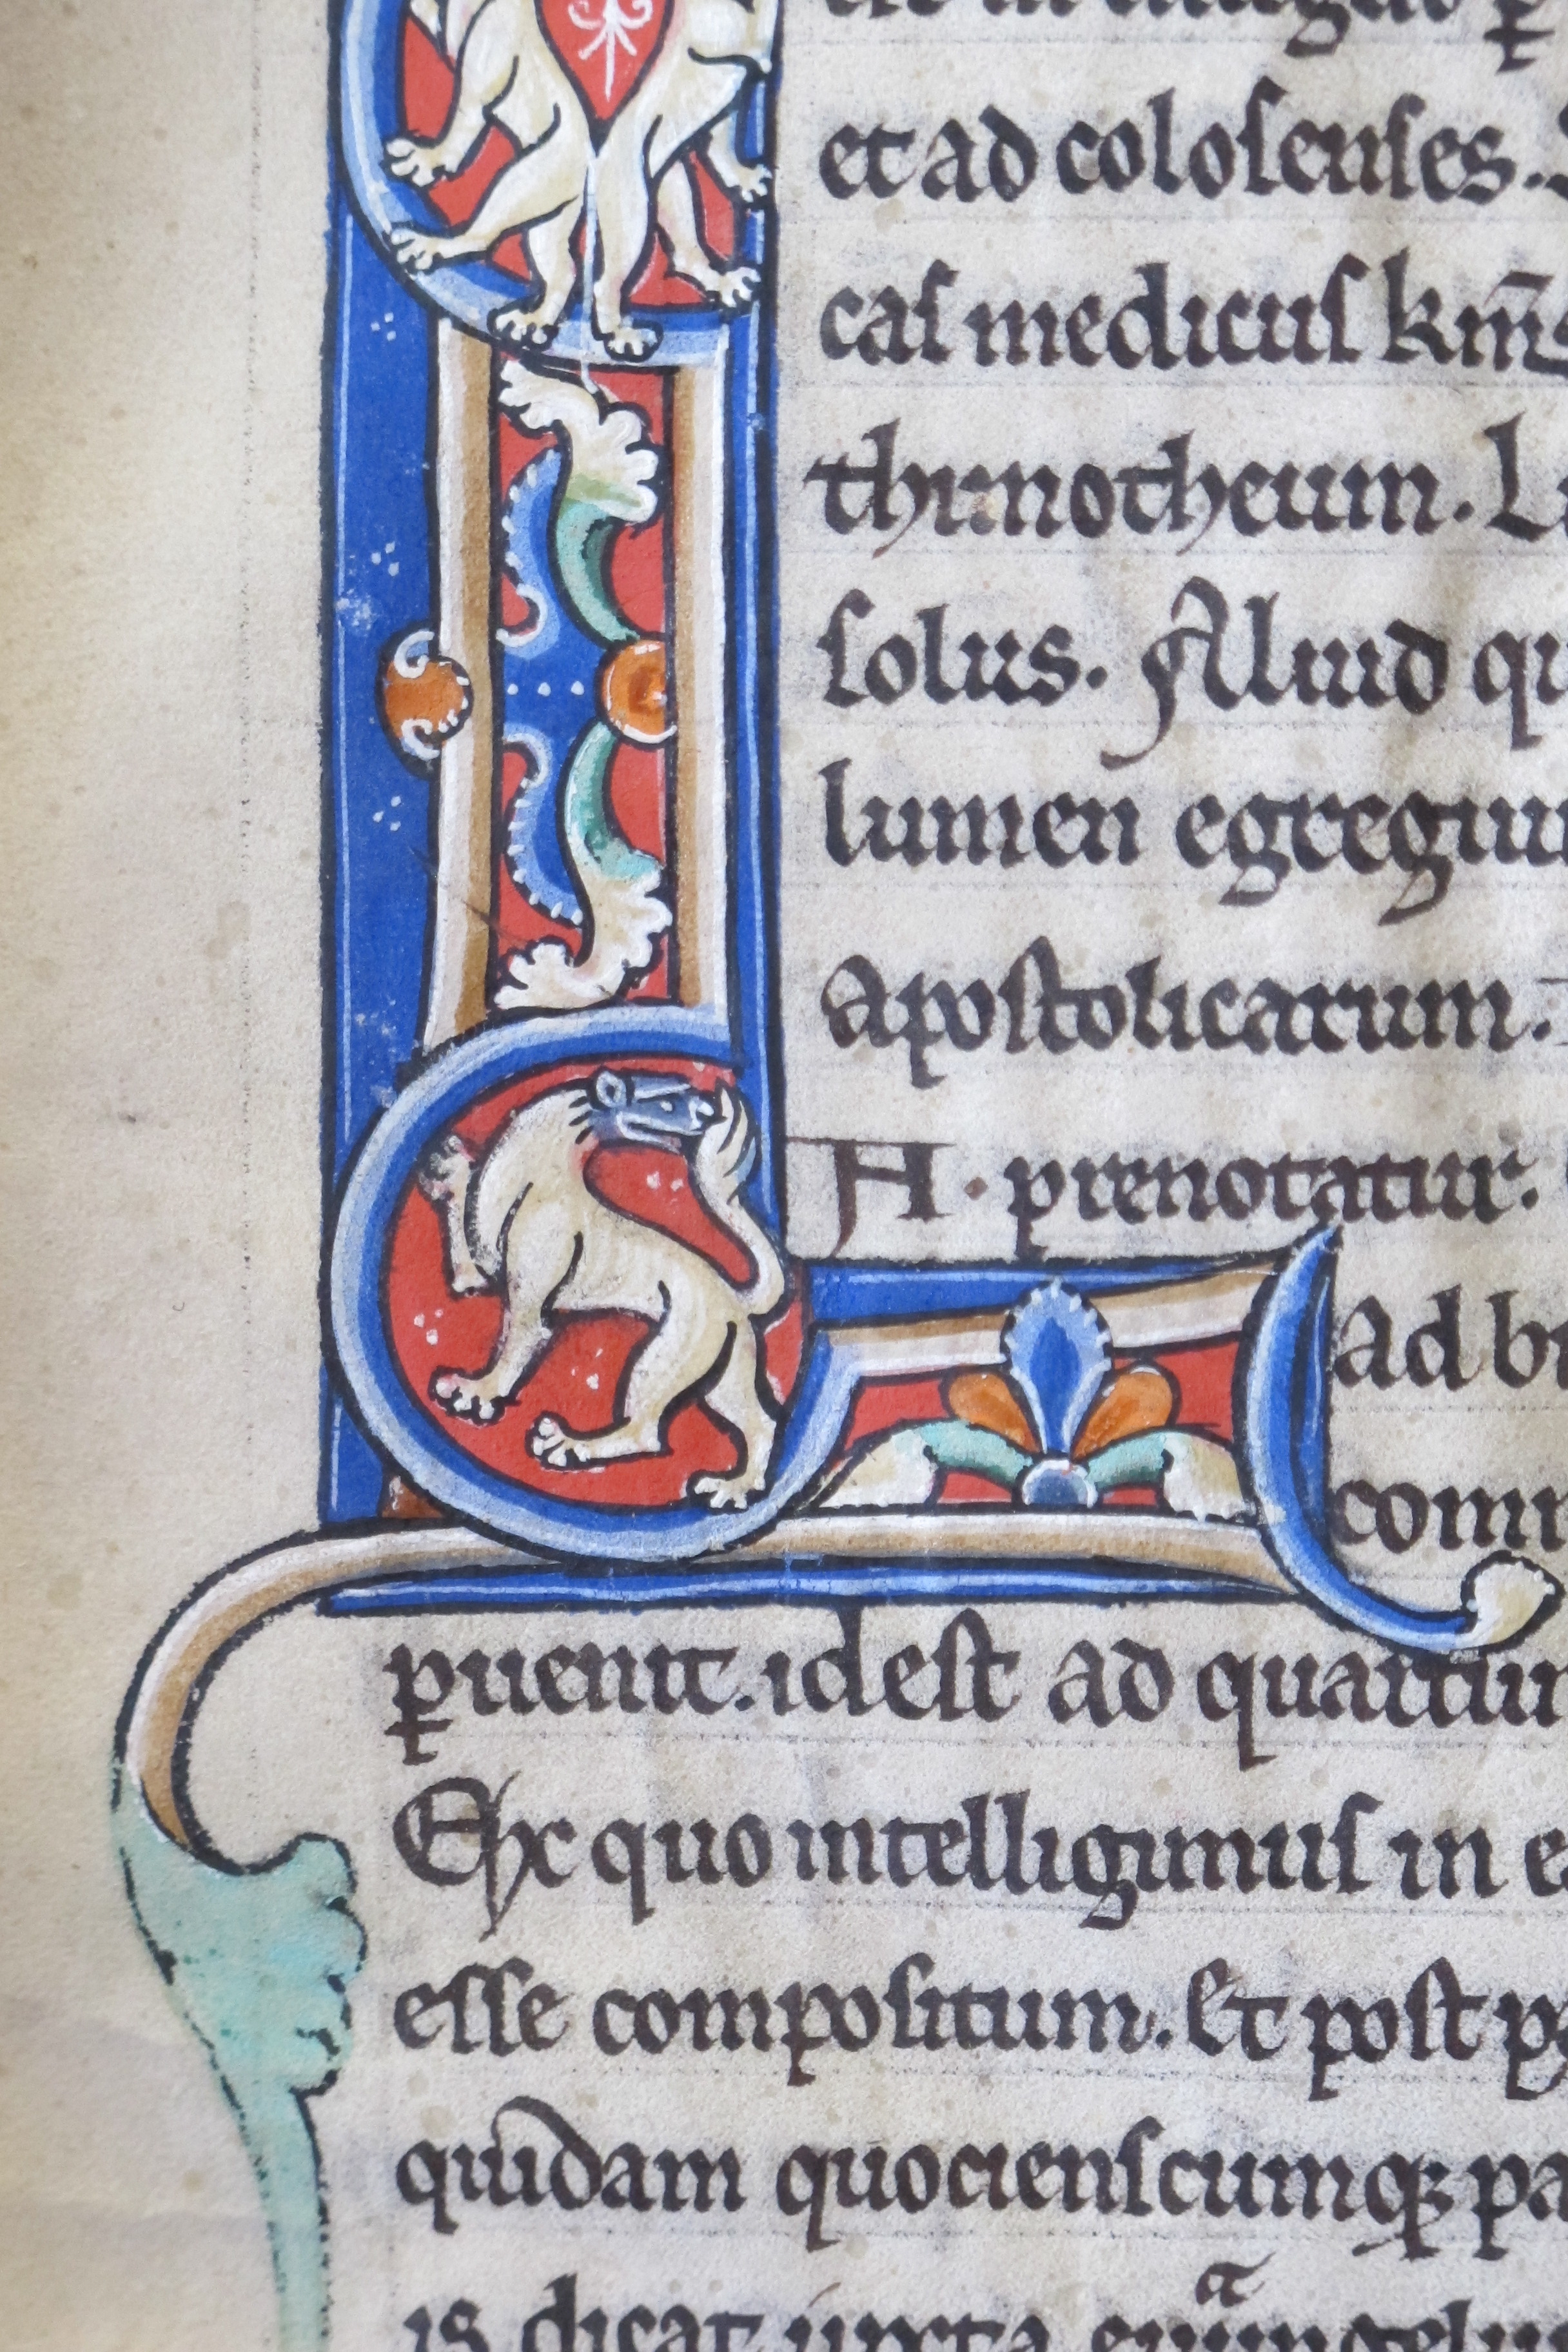 et ad colosenses.
cas medicus km̄
thimotheum. L
solus. Aliud qu
lumen egregiu
apostolicarum.
A. prenotatur.
ad br
com
ꝑuenit. id est ad quartum
Ex quo intelligimus in e
esse compositum. Et post p
quidam quocienscumqꝫ pa
is dicat iuxta